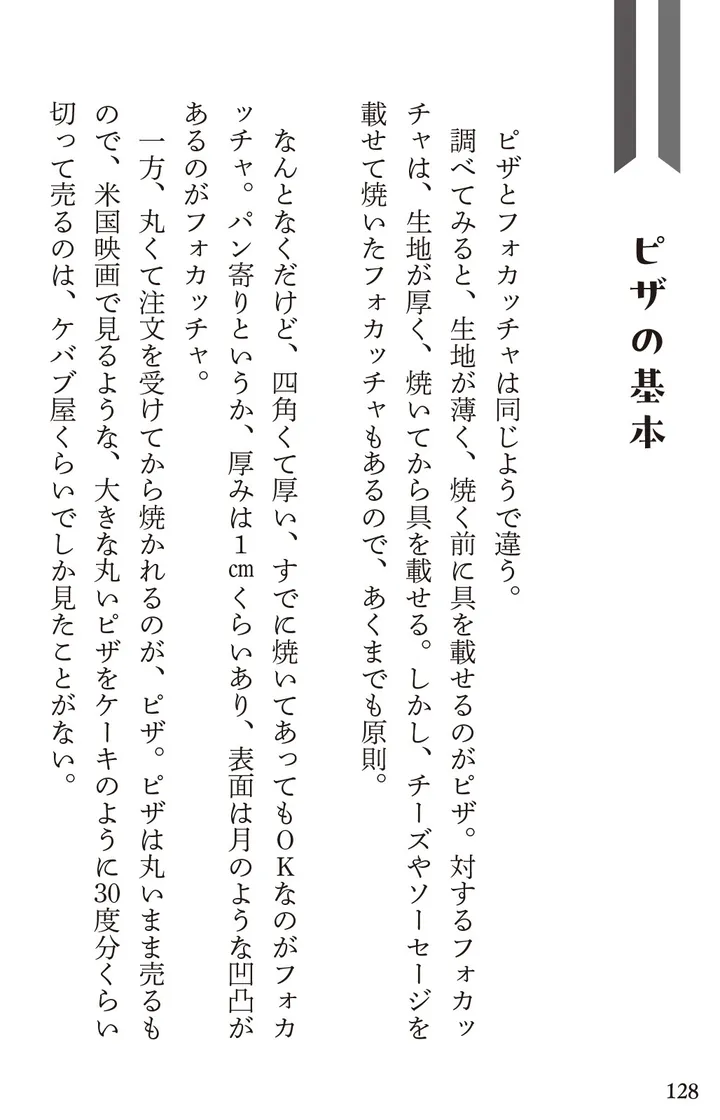 ピザの基本
ピザとフォカッチャは同じようで違う。
調べてみると、生地が薄く、焼く前に具を載せるのがピザ。対するフォカッ
チャは、生地が厚く、焼いてから具を載せる。しかし、チーズやソーセージを
載せて焼いたフォカッチャもあるので、あくまでも原則。
なんとなくだけど、四角くて厚い、すでに焼いてあってもOKなのがフォカ
ッチャ。パン寄りというか、厚みは1㎝くらいあり、表面は月のような凹凸が
あるのがフォカッチャ。
一方、丸くて注文を受けてから焼かれるのが、ピザ。ピザは丸いまま売るも
ので、米国映画で見るような、大きな丸いピザをケーキのように30度分くらい
切って売るのは、ケバブ屋くらいでしか見たことがない。
128